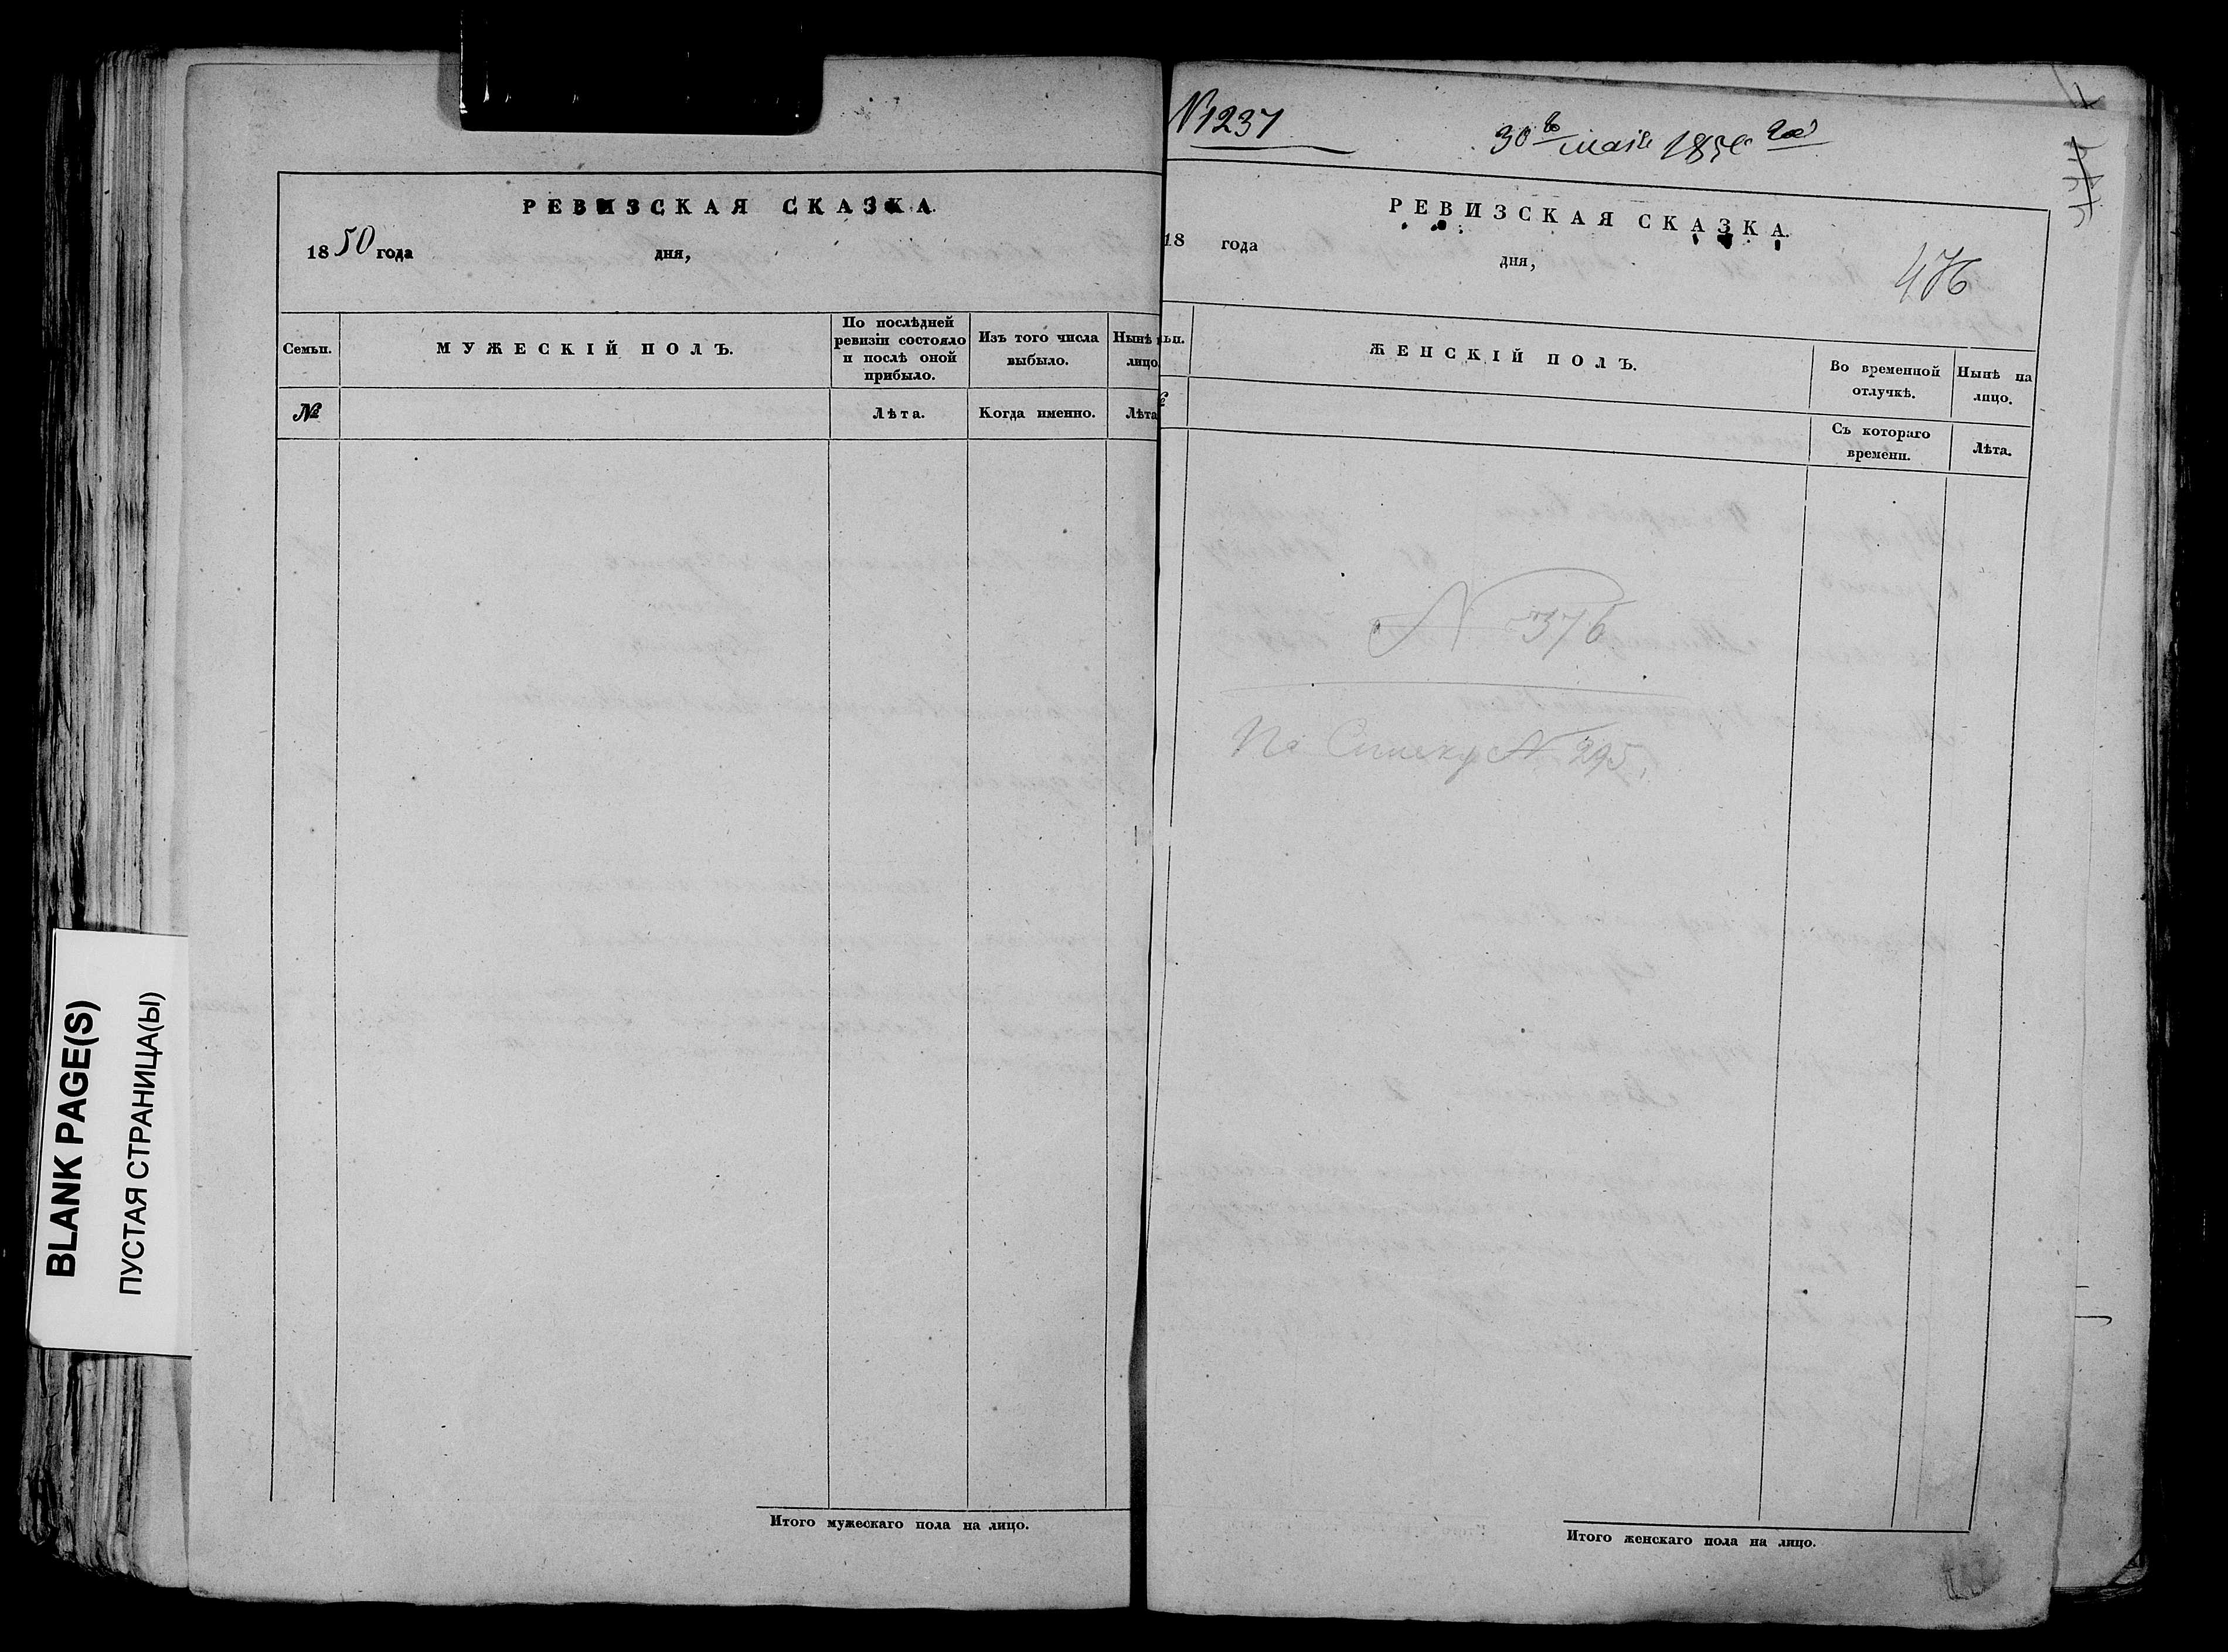 РЕВИЗСКАЯ СКАЗКА.
1850 года дня,
Семьи. МУЖЕСКІЙ ПОЛЪ. По послѣдней ревизіи состояло и послѣ оной прибыло. Изъ того числа выбыло. Нынѣ лицо.
№ Лѣта. Когда именно. Лѣта
Итого мужескаго пола на лицо.
BLANK PAGE(S)
ПУСТАЯ СТРАНИЦА(Ы)
№ 1237
30го маія 1850 года
РЕВИЗСКАЯ СКАЗКА.
18 года дня,
476
ьи. ЖЕНСКІЙ ПОЛЪ. Во временной отлучкѣ. Нынѣ на лицо.
Съ котораго времени. Лѣта.
N 376
По Списку N 295.
Итого женскаго пола на лицо.